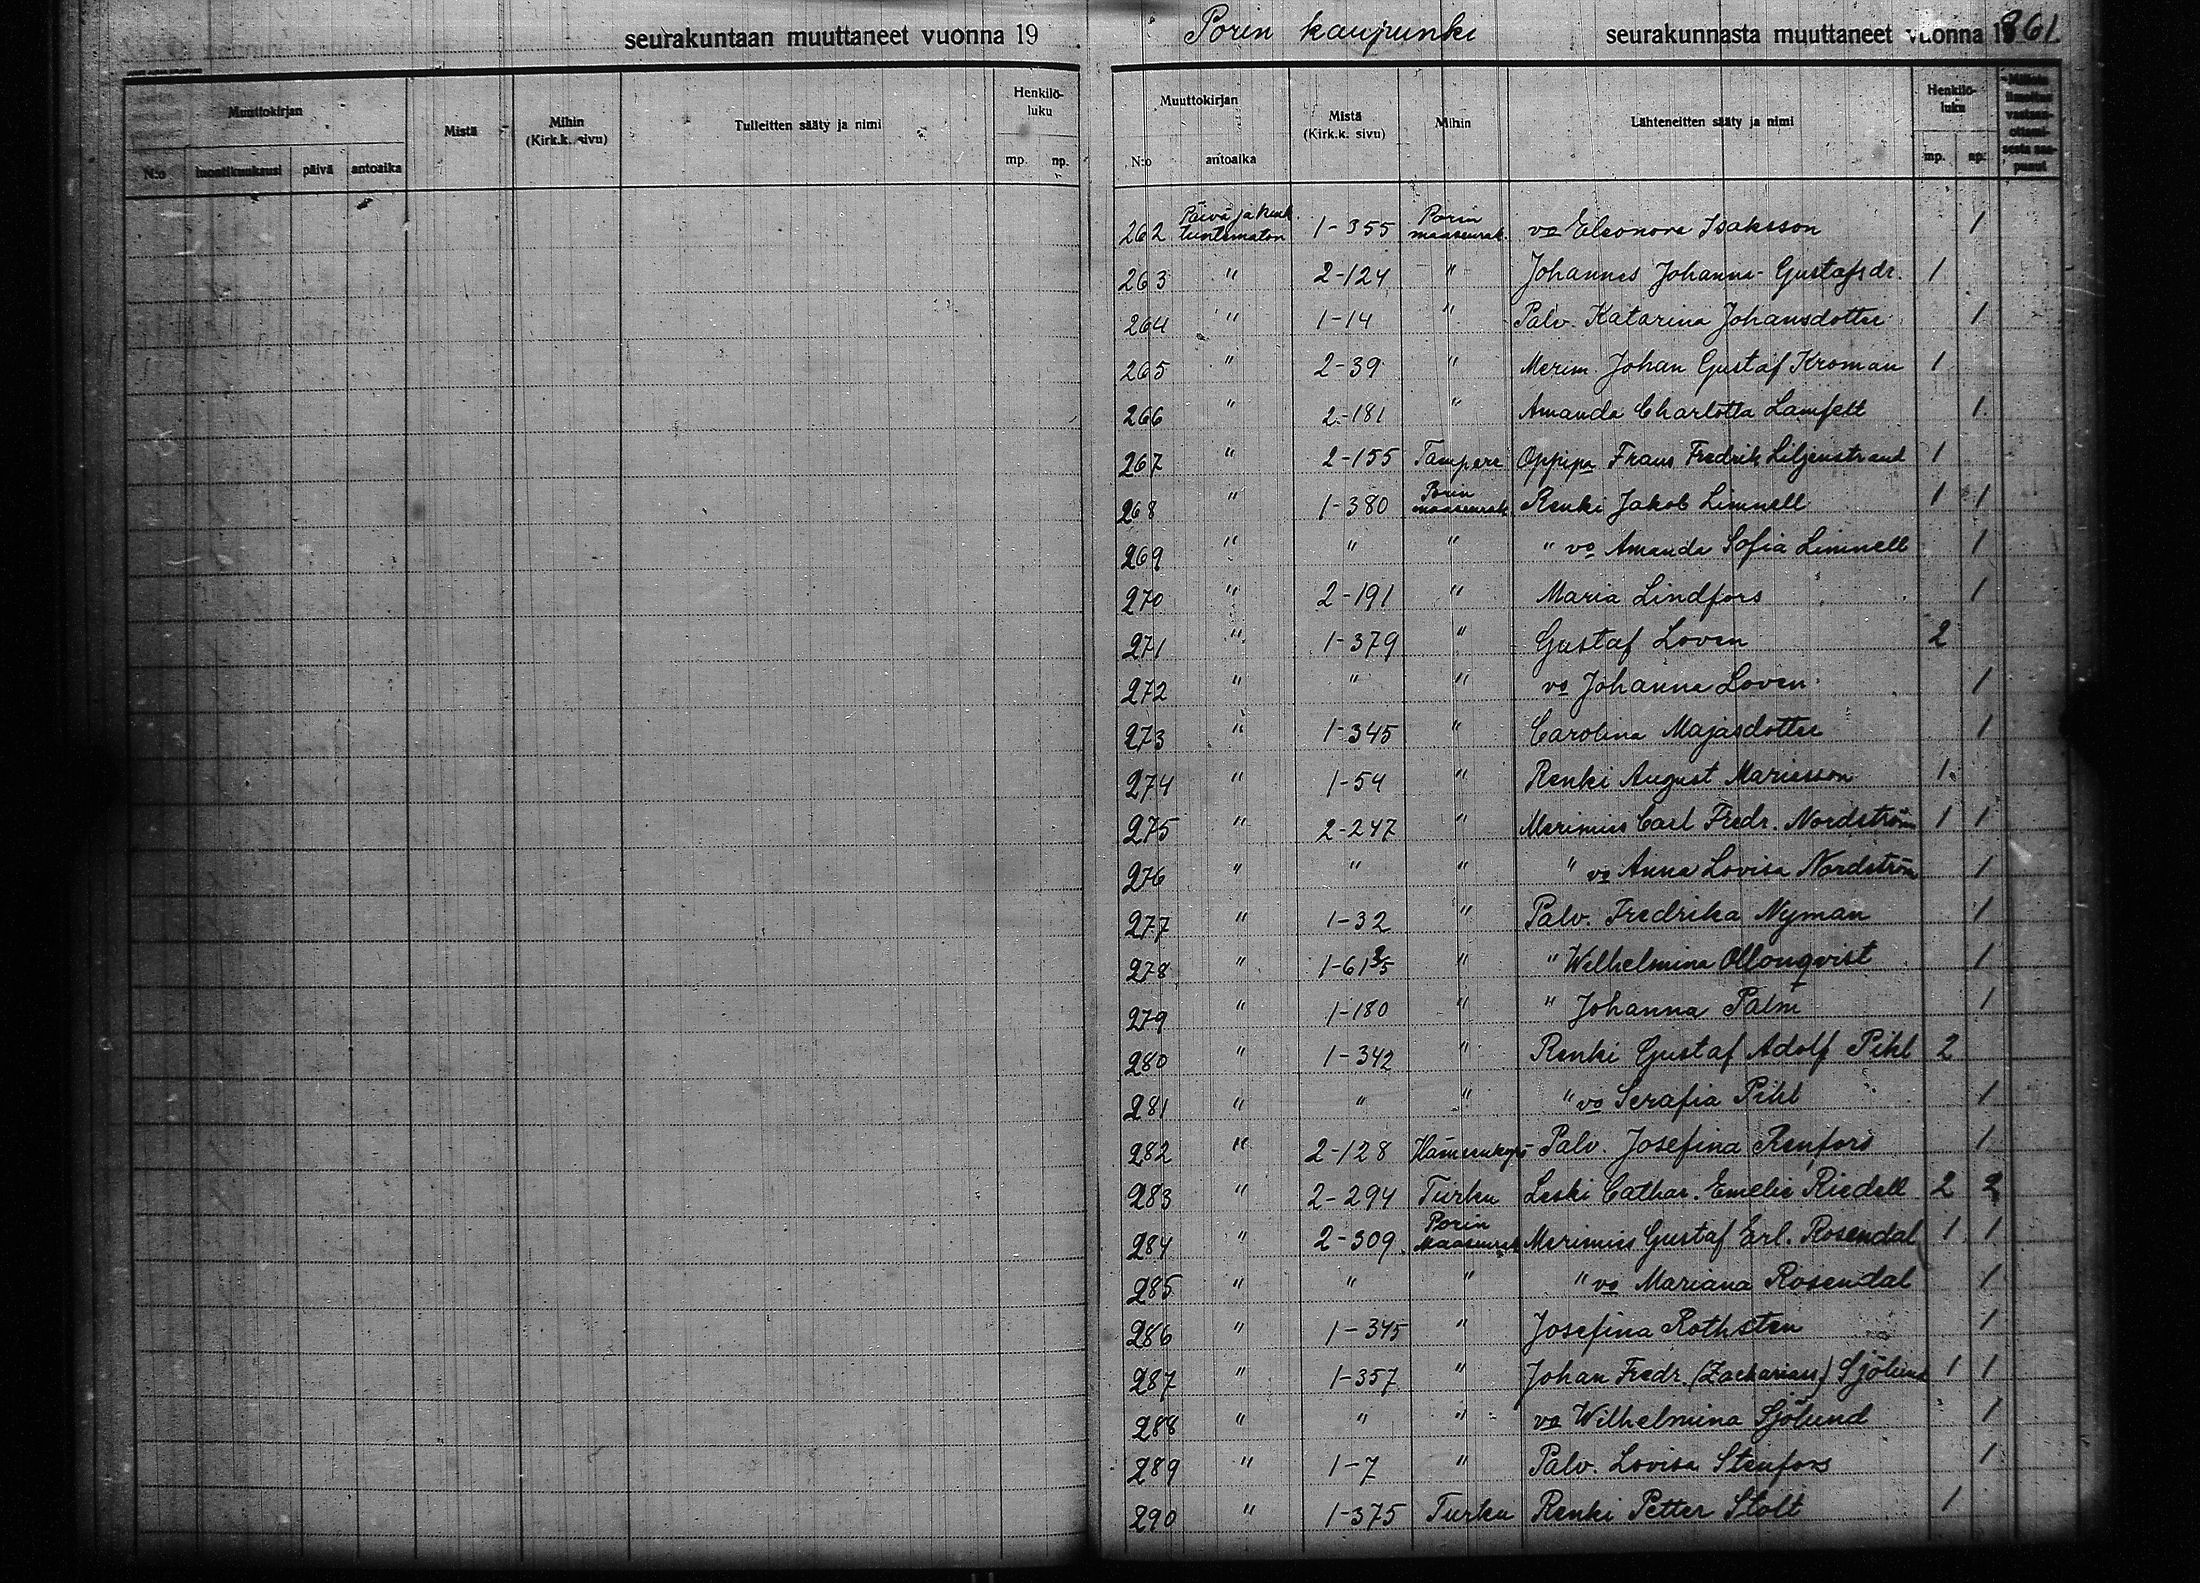 seurakuntaan muuttaneet vuonna 19
Muuttokirjan Mistä Mihin (Kirk.k. sivu) Tulleitten sääty ja nimi Henkilö-luku
N:o kuukausi päivä antoaika mp. np.
Porin kaupunki seurakunnasta muuttaneet vuonna 1861
Muuttokirjan Mistä (Kirk.k. sivu) Mihin Lähteneitten sääty ja nimi Henkilö-luku
N:o antoaika mp. np.
262 Päivä ja kuuk. tuntematon 1-355 Porin maaseurak. vo Eleonora Isaksson 1
263 " 2-124 " Johannes Johanna-Gustafsdr. 1
264 " 1-14 " Palv. Katarina Johansdotter 1
265 " 2-39 " Merim. Johan Gustaf Kroman 1
266 " 2-181 " Amanda Charlotta Lamfelt 1
267 " 2-155 Tampere Oppipa Frans Fredrik Liljenstrand 1
268 " 1-380 Porin maaseurak Renki Jakob Limnell 1 1
269 " " " " vo Amanda Sofia Limnell 1
270 " 2-191 " Maria Lindfors 1
271 " 1-379 " Gustaf Loven 2
272 " " " vo Johanna Loven 1
273 " 1-345 " Carolina Majasdotter 1
274 " 1-54 " Renki August Mariesson 1
275 " 2-247 " Merimies Carl Fredr. Nordström 1 1
276 " " " " vo Anna Lovisa Nordström 1
277 " 1-32 " Palv. Fredrika Nyman 1
278 " " " Wilhelmina Ollonqvist 1
279 " 1-180 " " Johanna Palm 1
280 " 1-342 " Renki Gustaf Adolf Pihl 2
281 " " " " vo Serafia Pihl 1
282 " 2-128 Hämeenkyrö Palv. Josefina Renfors 1
283 " 2-294 Turku Leski Cathar. Emelie Riedell 2 2
284 " 2-309 Porin Maaseurak Merimies Gustaf Erl. Rosendal 1 1
285 " " " " vo Mariana Rosendal 1
286 " 1-345 " Josefina Rothsten 1
287 " 1-357 " Johan Fredr. (Zacharias) Sjölund 1 1
288 " " " vo Wilhelmina Sjölund 1
289 " 1-7 " Palv. Lovisa Stenfors 1
290 " 1-375 Turku Renki Petter Stolt 1